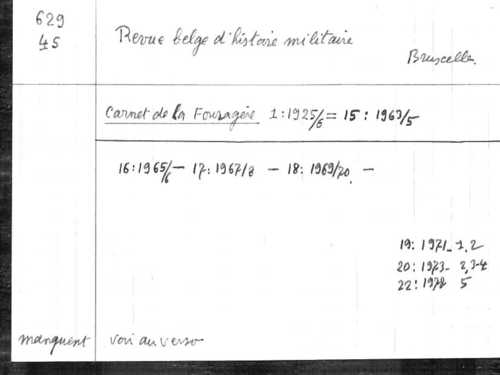 629
45
Revue belge d'histoire militaire
Bruxelles.
Carnet de la Fourragère 1:1925/6 = 15: 1963/5
16:1965/6 - 17: 1967/8 - 18: 1969/70. -
19: 1971- 1,2
20: 1973- 2,3-4
22: 1978 5
manquent voir au verso